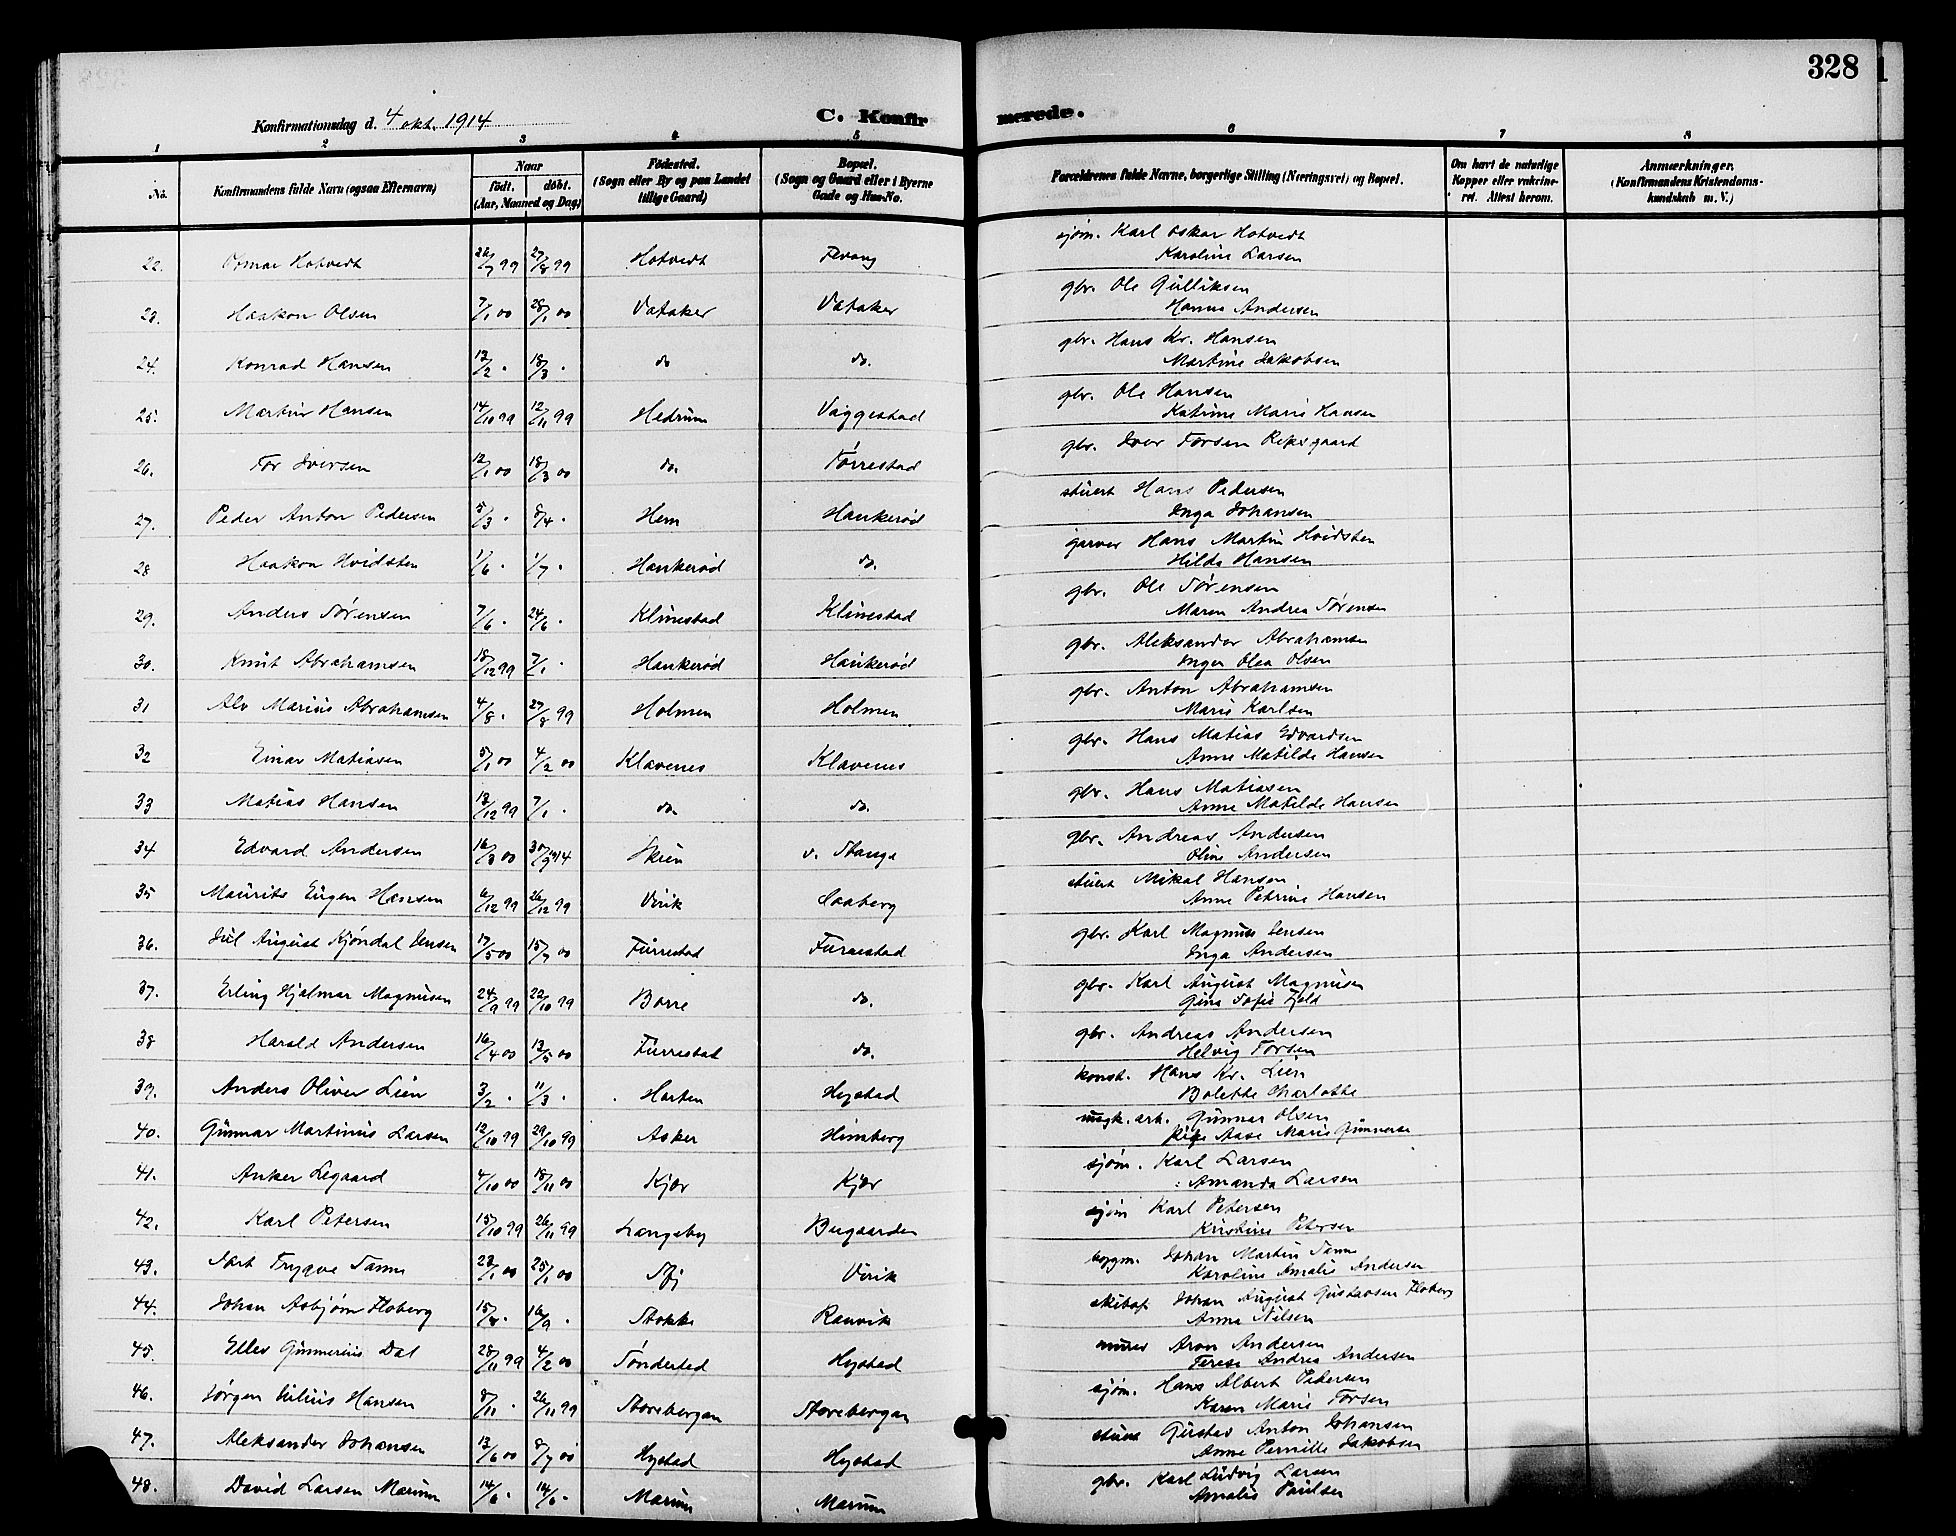 328
Konfirmationsdag d. 4 okt. 1914
C. Konfirmerede.
1 2 3 4 5 6 7 8
No.
Konfirmandens fulde Navn (ogsaa Efternavn)
Naar
født. døbt.
(Aar, Maaned og Dag)
Fødested.
(Sogn eller By og paa Landet
tillige Gaard)
Bopæl.
(Sogn og Gaard eller i Byerne
Gade og Hus-No.
Forældrenes fulde Navne, borgerlige Stilling (Næringsvei) og Bopæl.
Om havt de naturlige
Kopper eller vakcine-
ret. Attest herom.
Anmærkninger.
(Konfirmandens Kristendoms-
kundskab m. V.)
22. Hotvedt 26/7 99 27/8 99 Hotvedt Fevang sjøm. Karl Oskar Hotvedt
Karoline Larsen
23. Haakon Olsen 7/1 00 28/1 00 Vataker Vataker gbr. Ole Gulliksen
Hanna Andersen
24. Konrad Hansen 12/2 . 18/3 . do do. gbr. Hans Kr. Hansen
Martine Jakobsen
25. Martin Hansen 14/10 99 12/11 99 Hedrum Vaggestad gbr. Ole Hansen
Katrine Marie Hansen
26. Tor Iversen 12/1 00 18/3 00 do. Torrestad gbr. Iver Torsen
27. Peder Anton Pedersen 5/3 . 8/4 . Hem Haukerød stuert Hans Pedersen
Inga Johansen
28 Haakon Hvidsten 1/6 . 1/7 . Haukerød do. garver Hans Martin Hvidsten
Hilda Hansen
29. Anders Sørensen 7/6 . 24/6 . Klinestad Klinestad gbr. Ole Sørensen
Maren Andrea Sørensen
30. Knut Abrahamsen 18/12 99 7/1 . Haukerød Haukerød gbr. Aleksander Abrahamsen
Inger Olea Olsen
31 Alv Marius Abrahamsen 4/8 . 27/8 99 Holmen Holmen gbr. Anton Abrahamsen
Marie Karlsen
32 Einar Matiasen 5/1 00 4/2 00 Klavenes Klavenes gbr. Hans Matias Edvardsen
Anne Matilde Hansen
33 Matias Hansen 13/12 99 7/1 . do. do. gbr. Hans Matiasen
Anne Matilde Hansen
34 Edvard Andersen 16/3 00 30/9 1914 Skien v. Stange gbr. Andreas Andersen
Oline Andersen
35 Maurits Eugen Hansen 6/12 99 26/12 99 Virik Saaberg stuert Mikal Hansen
Anne Petrine Hansen
36. Jul August Kjøndal Jensen 17/5 00 15/7 00 Furrestad Furuestad gbr. Karl Magnus Jensen
Inga Andersen
37. Erling Hjalmar Magnusen 24/9 99 22/10 99 Borre do. gbr. Karl August Magnusen
Gina Sofie
38 Harald Andersen 16/4 00 13/5 00 Furrestad do. gbr. Andreas Andersen
Helvig Torsen
39. Anders Oliver Lien 3/2 . 11/3 . Horten Hystad konst. Hans Kr. Lien
Bolette Charlotte
40. Gunnar Martinus Larsen 12/10 99 29/10 99 Asker Himberg arb. Gunnar Olsen
Aase Marie
41. Anker Legaard 4/10 00 18/11 00 Kjær Kjær sjøm. Karl Larsen
Amanda Larsen
42. Karl Petersen 15/10 99 26/11 99 Langeby Bugaarden sjøm Karl Petersen
Kristine Petersen
43. Trygve Tanne 23/1 00 25/1 00 Virik Johan Martin Tanne
Karoline Amalie Andersen
44. Johan Asbjørn Floberg 15/8 . 16/9 . Stokke Ranvik Johan August Gustavsen Floberg
Anna Nilsen
45. Ellev Gunnerius Dal 28/11 99 4/2 00 Søndersted Hystad murer Aron Andersen
Terese Andrea Andersen
46. Jørgen Julius Hansen 8/11 . 26/11 99 Storebergan Storebergan sjøm. Hans Albert Pedersen
Karen Marie Torsen
47. Aleksander Johansen 13/6 00 8/7 00 Hystad Hystad Gustav Anton Johansen
Anne Pernille Jakobsen
48. David Larsen Marum 14/6 . Marum Marum gbr. Karl Ludvig Larsen
Amalie Paulsen